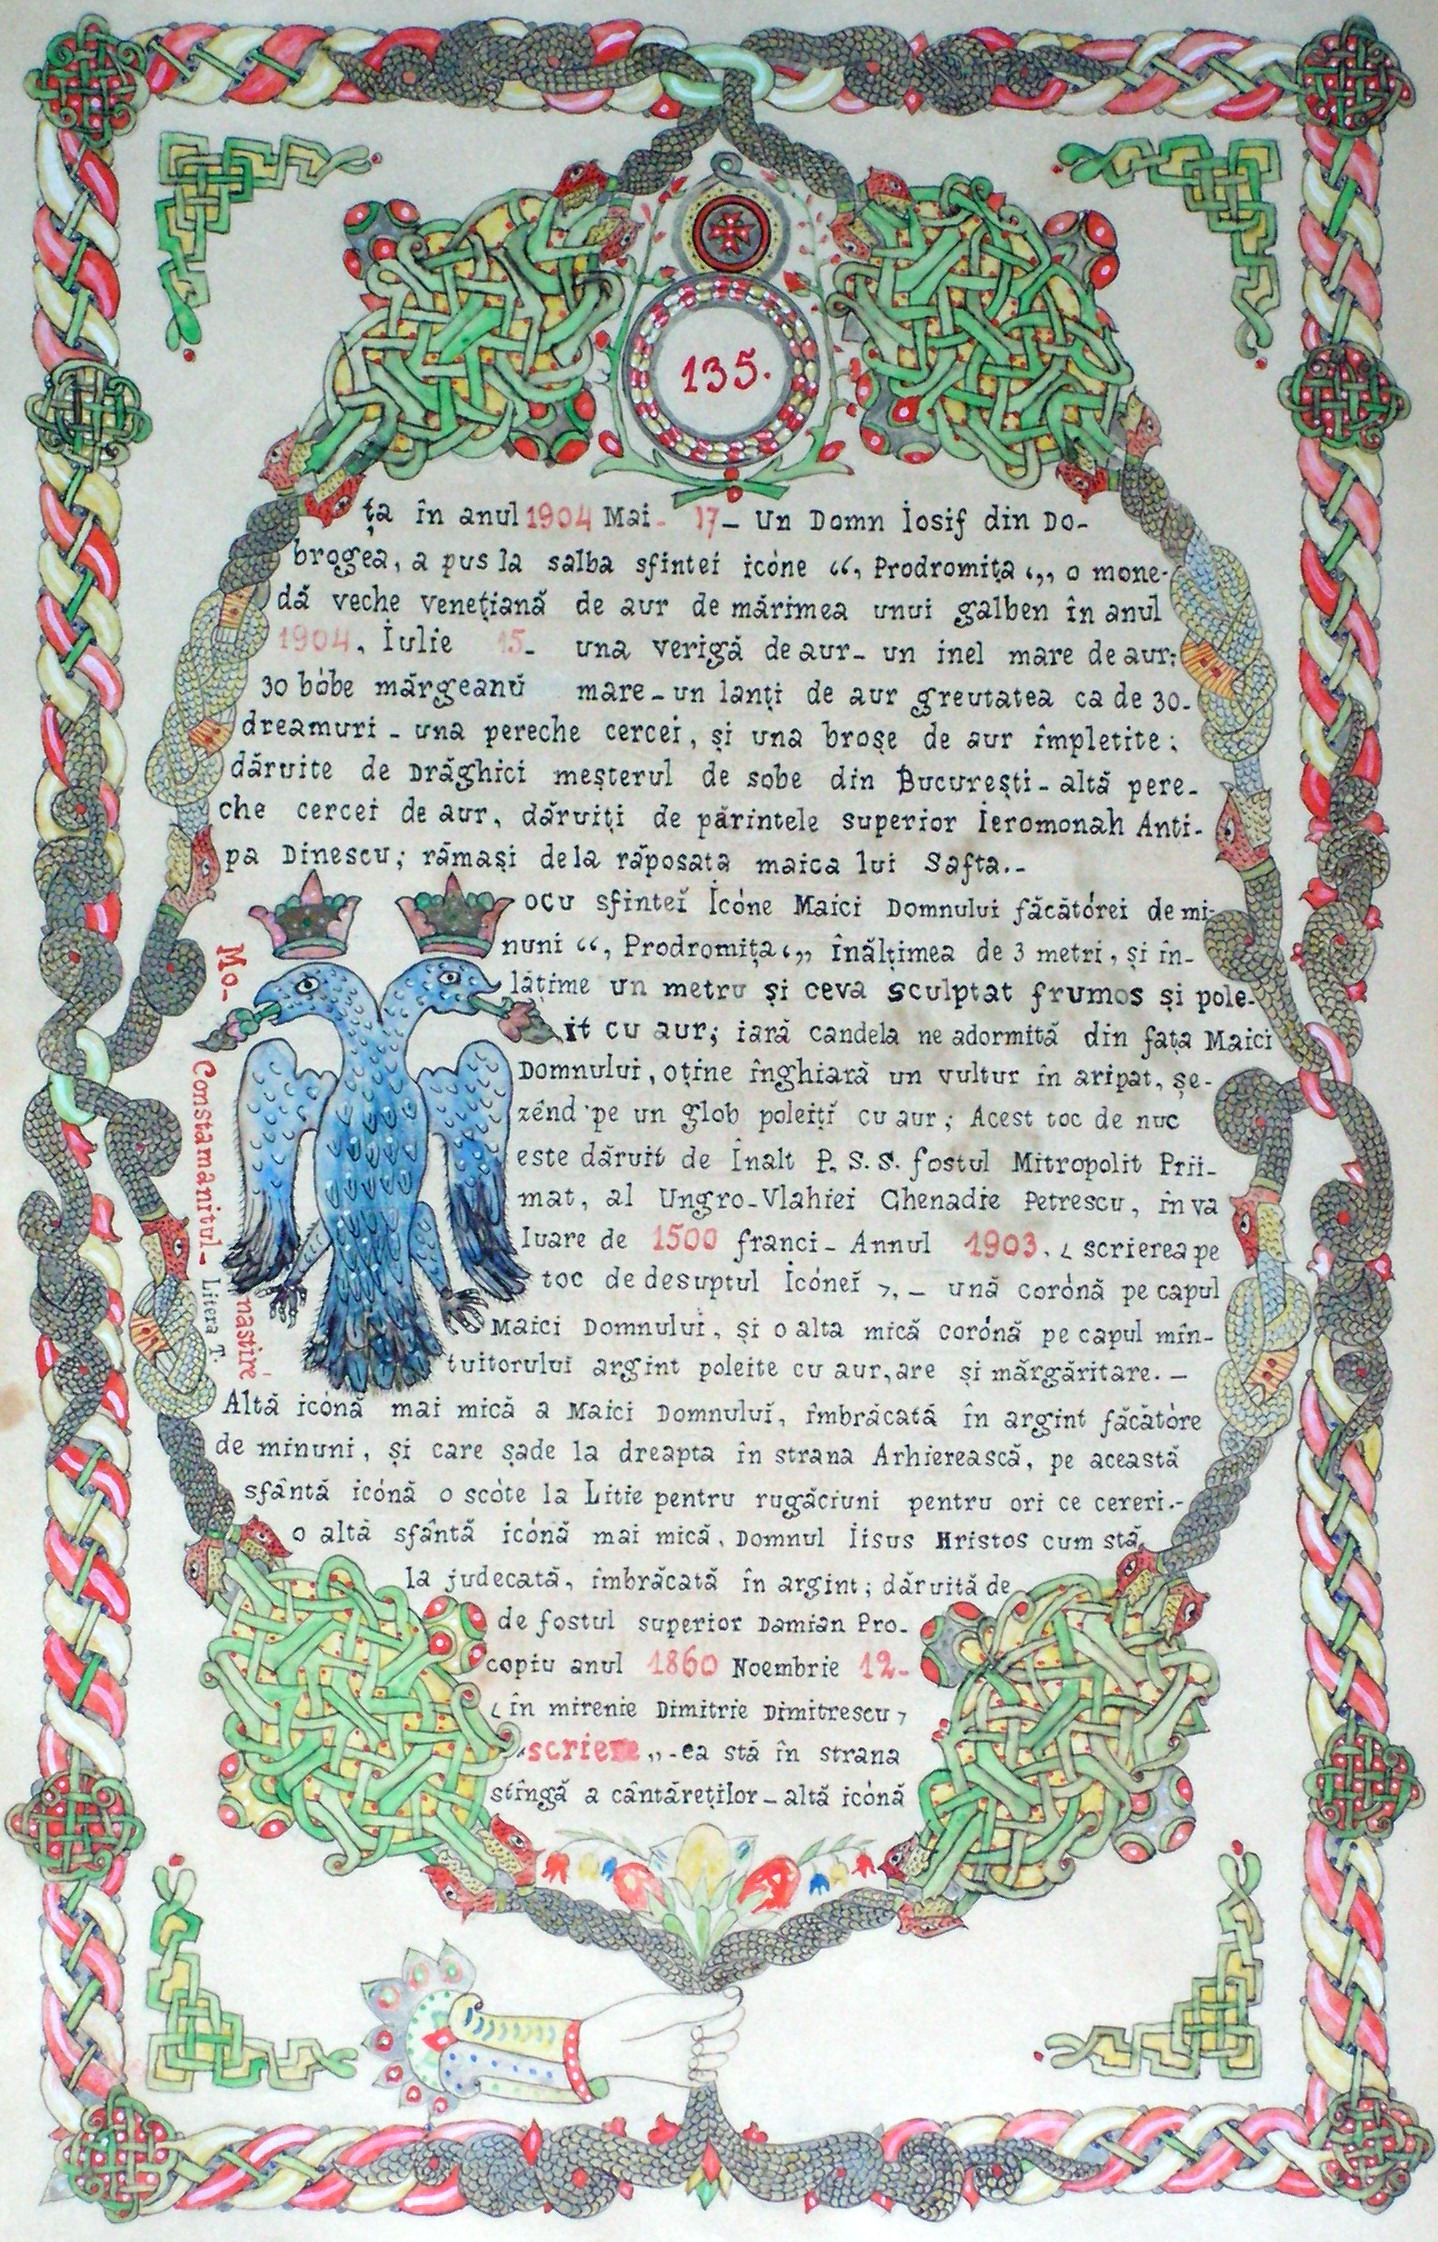 135.
ța în anul 1904 Mai- 17- Un Domn Iosif din Do-
brogea, a pus la salba sfintei icóne “, Prodromița ‘,, o mone-
dă veche venețiană de aur de mărimea unui galben în anul
1904, Iulie 15- una verigă de aur- un inel mare de aur;
30 bóbe mărgeanŭ mare-un lanți de aur greutatea ca de 30-
dreamuri - una pereche cercei, și una broșe de aur împletite;
dăruite de Drăghici meșterul de sobe din București- altă pere-
che cercei de aur, dăruiți de părintele superior Ieromonah Anti-
pa Dinescu; rămași dela răposata maica lui Safta.-
ocu sfintei Icóne Maici Domnului făcătórei de mi-
nuni “, Prodromița ‘,, înălțimea de 3 metri, și în-
lățime un metru și ceva sculptat frumos și pole-
it cu aur; iară candela ne adormită din fața Maici
Domnului, oține înghiară un vultur în aripat, șe-
zênd pe un glob poleiți cu aur; Acest toc de nuc
este dăruit de Înalt P. S. S. fostul Mitropolit Prii-
mat, al Ungro-Vlahiei Ghenadie Petrescu, în va
luare de 1500 franci- Annul 1903. ‹ scrierea pe
toc de desuptul Icónei ›, - ună corónă pe capul
Maici Domnului, și o alta mică corónă pe capul mîn-
tuitorului argint poleite cu aur, are și mărgăritare. -
Mo-
nastire
Constamanitul-
Litera T.
Altă icónă mai mică a Maici Domnului, îmbrăcată în argint făcătóre
de minuni, și care șade la dreapta în strana Arhierească, pe această
sfântă icónă o scóte la Litie pentru rugăciuni pentru ori ce cereri.-
o altă sfântă icónă mai mică, Domnul Iisus Hristos cum stă
la judecată, îmbrăcată în argint; dăruită de
de fostul superior Damian Pro-
copiu anul 1860 Noembrie 12-
‹ în mirenie Dimitrie Dimitrescu ›
“scriere „-ea stă în strana
stîngă a cântăreților-altă icónă